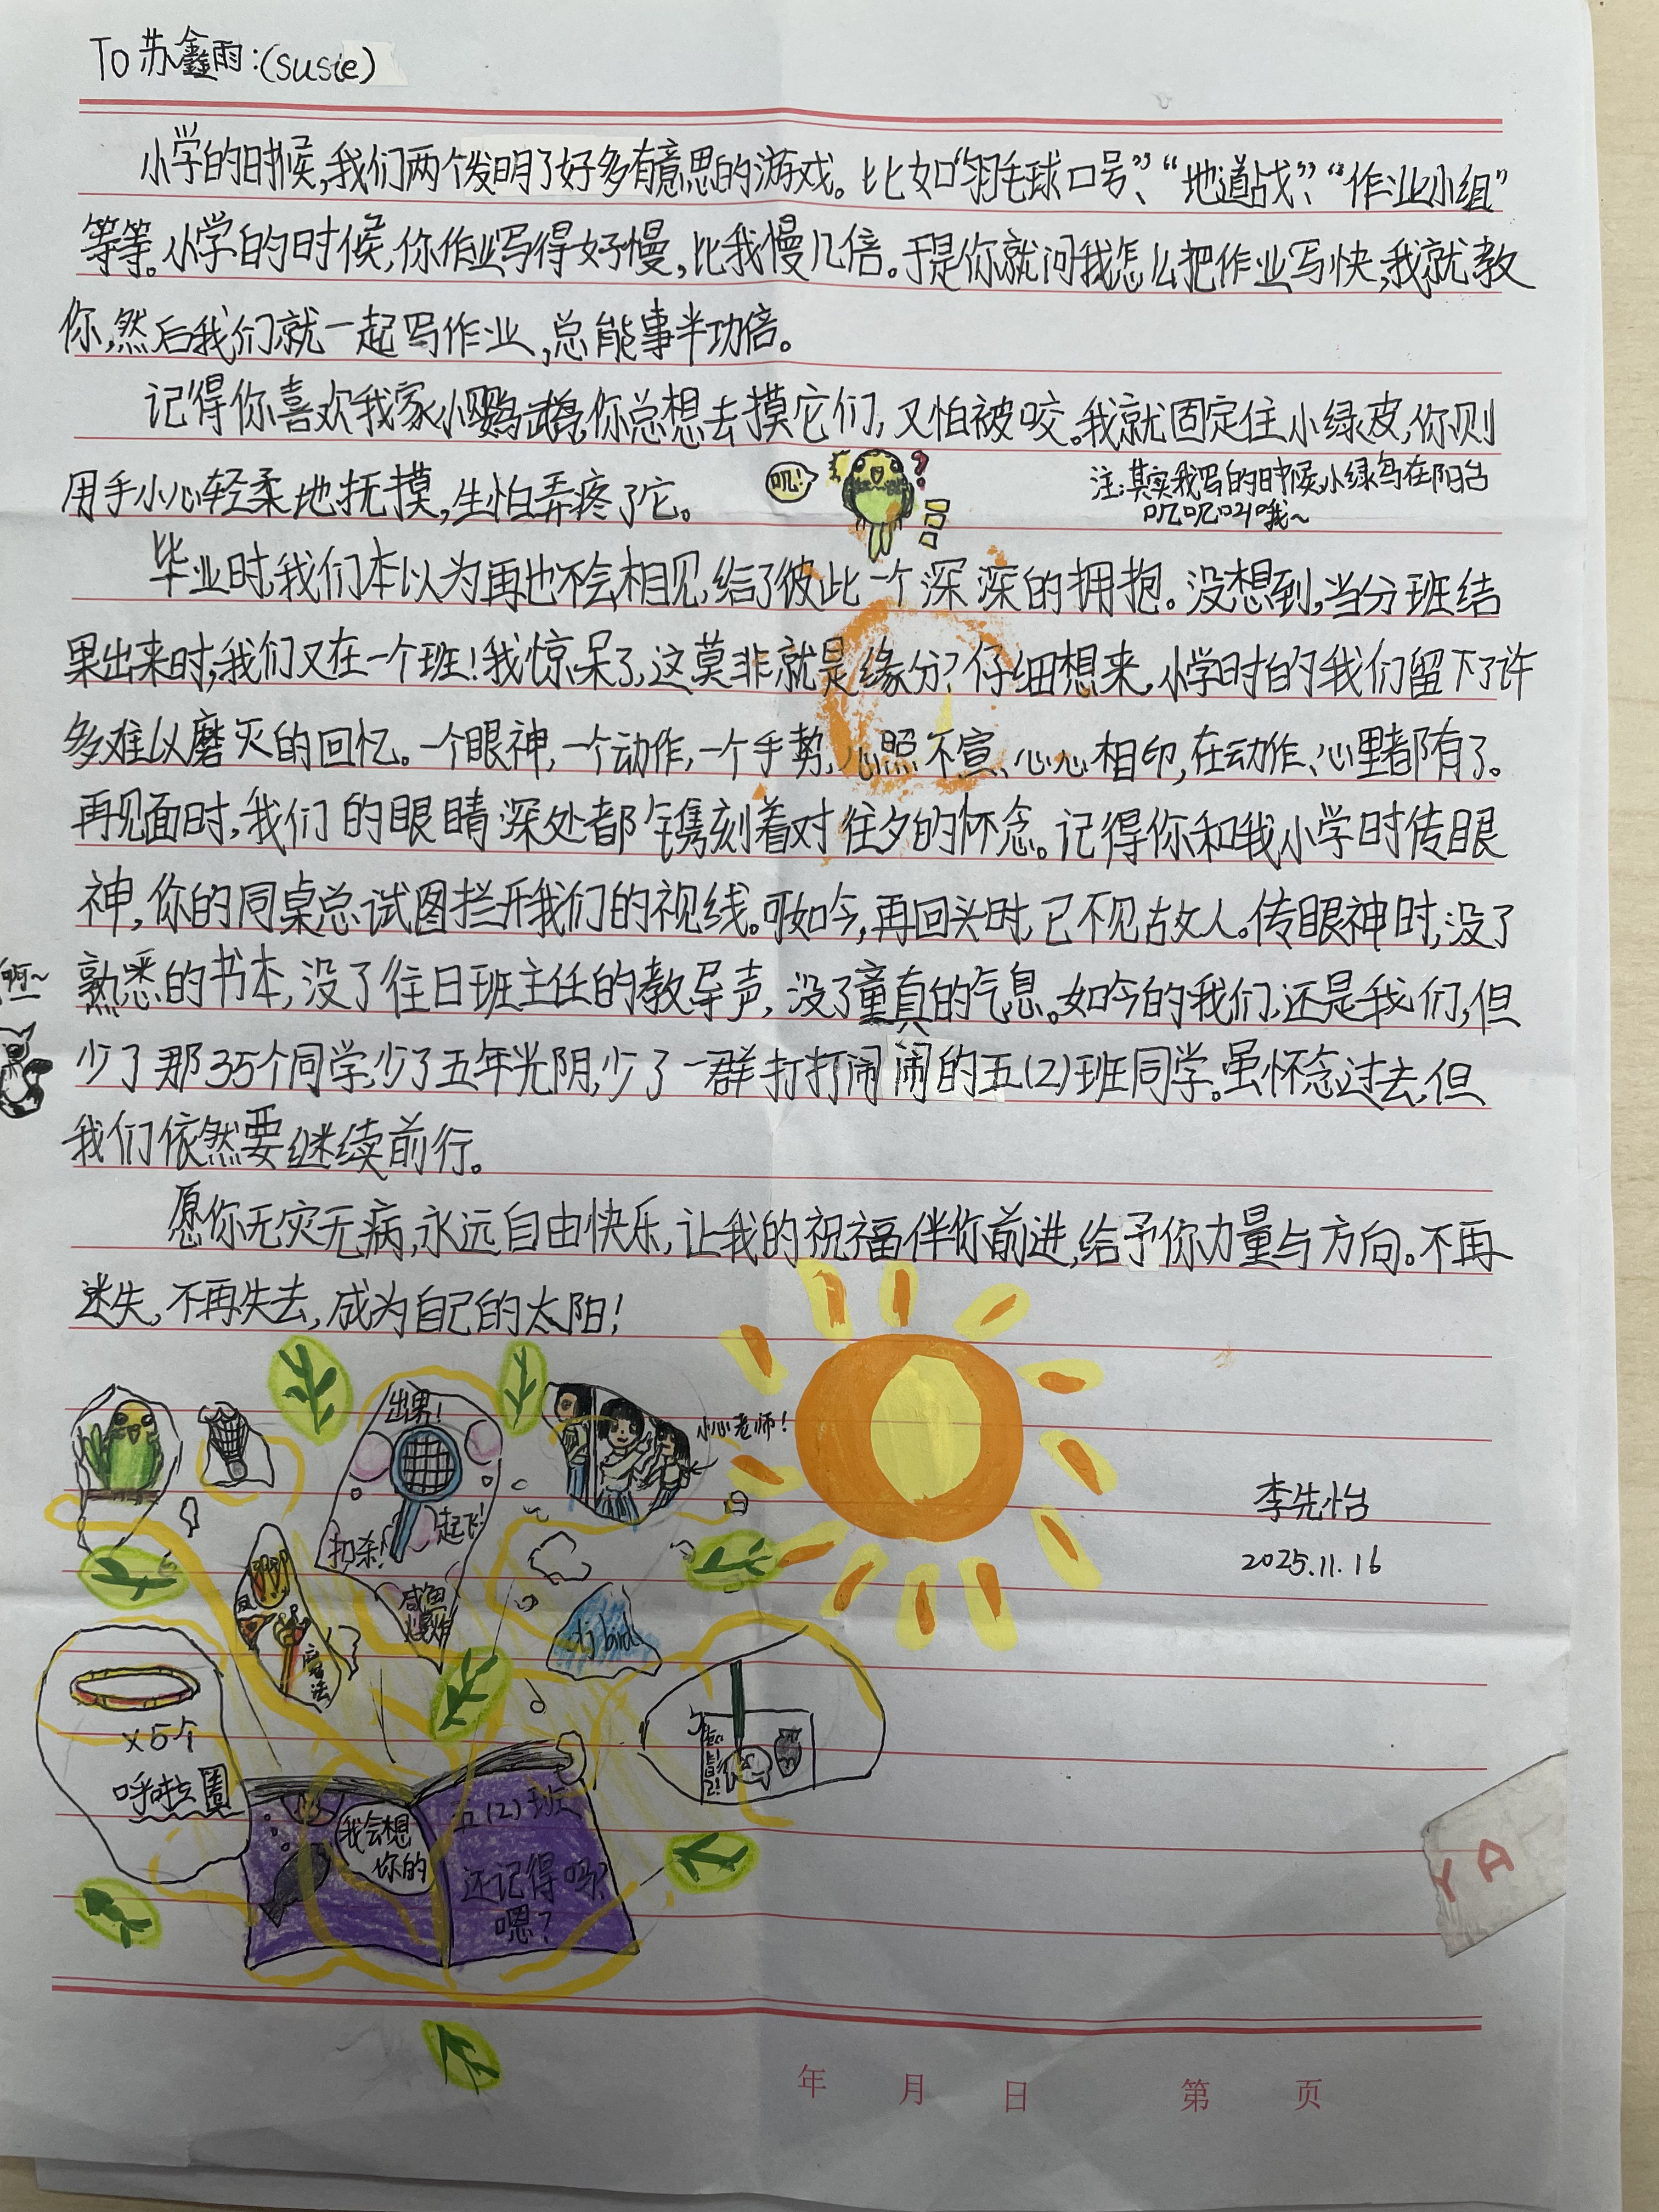 To 苏鑫雨:(Susie)
小学的时候,我们两个发明了好多有意思的游戏。比如“羽毛球口号”、“地道战”、“作业小组”
等等。小学的时候,你作业写得好慢,比我慢几倍。于是你就问我怎么把作业写快,我就教
你,然后我们就一起写作业,总能事半功倍。
记得你喜欢我家小鹦鹉,你总想去摸它们,又怕被咬。我就固定住小绿皮,你则
用手小心轻柔地抚摸,生怕弄疼了它。
叽!
注:其实我写的时候,小绿鸟在阳台
叽叽叫哦~
毕业时,我们本以为再也不会相见,给了彼此一个深深的拥抱。没想到,当分班结
果出来时,我们又在一个班!我惊呆了,这莫非就是缘分?仔细想来,小学时的我们留下了许
多难以磨灭的回忆。一个眼神,一个动作,一个手势,心照不宣、心心相印,在动作、心里都有了。
再见面时,我们的眼睛深处都镌刻着对往夕的怀念。记得你和我小学时传眼
神,你的同桌总试图拦开我们的视线。可如今,再回头时,已不见故人。传眼神时,没了
熟悉的书本,没了往日班主任的教导声,没了童真的气息。如今的我们,还是我们,但
少了那35个同学,少了五年光阴,少了一群打打闹闹的五(2)班同学。虽怀念过去,但
我们依然要继续前行。
愿你无灾无病,永远自由快乐,让我的祝福伴你前进,给予你力量与方向。不再
迷失,不再失去,成为自己的太阳!
出界!
小心老师!
扣杀!
起飞!
咸鱼
爆炸
魔法
bird
李先怡
2025.11.16
x5个
呼啦圈
我会想
你的
五(2)班
还记得吗?
嗯?
YA
年 月 日 第 页